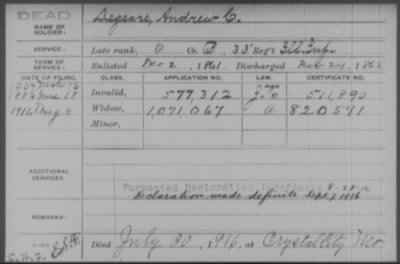 DEAD
NAME OF SOLDIER: Degeare, Andrew C.
SERVICE: Late rank, Co. B, 33 Reg't Ill. Inf.
TERM OF SERVICE: Enlisted Dec 2, 1861 Discharged Nov. 24, 1865
DATE OF FILING. CLASS. APPLICATION NO. LAW. CERTIFICATE NO.
Invalid, 577,312 511,890
1916 Aug 5 Widow, 1,071,067 a 820591
Minor,
ADDITIONAL SERVICES:
Purported Declaration indefinite 8-28-16
Declaration made definite Sept. 7 1916
REMARKS:
Died July 30, 1916, at Crystal City Mo.